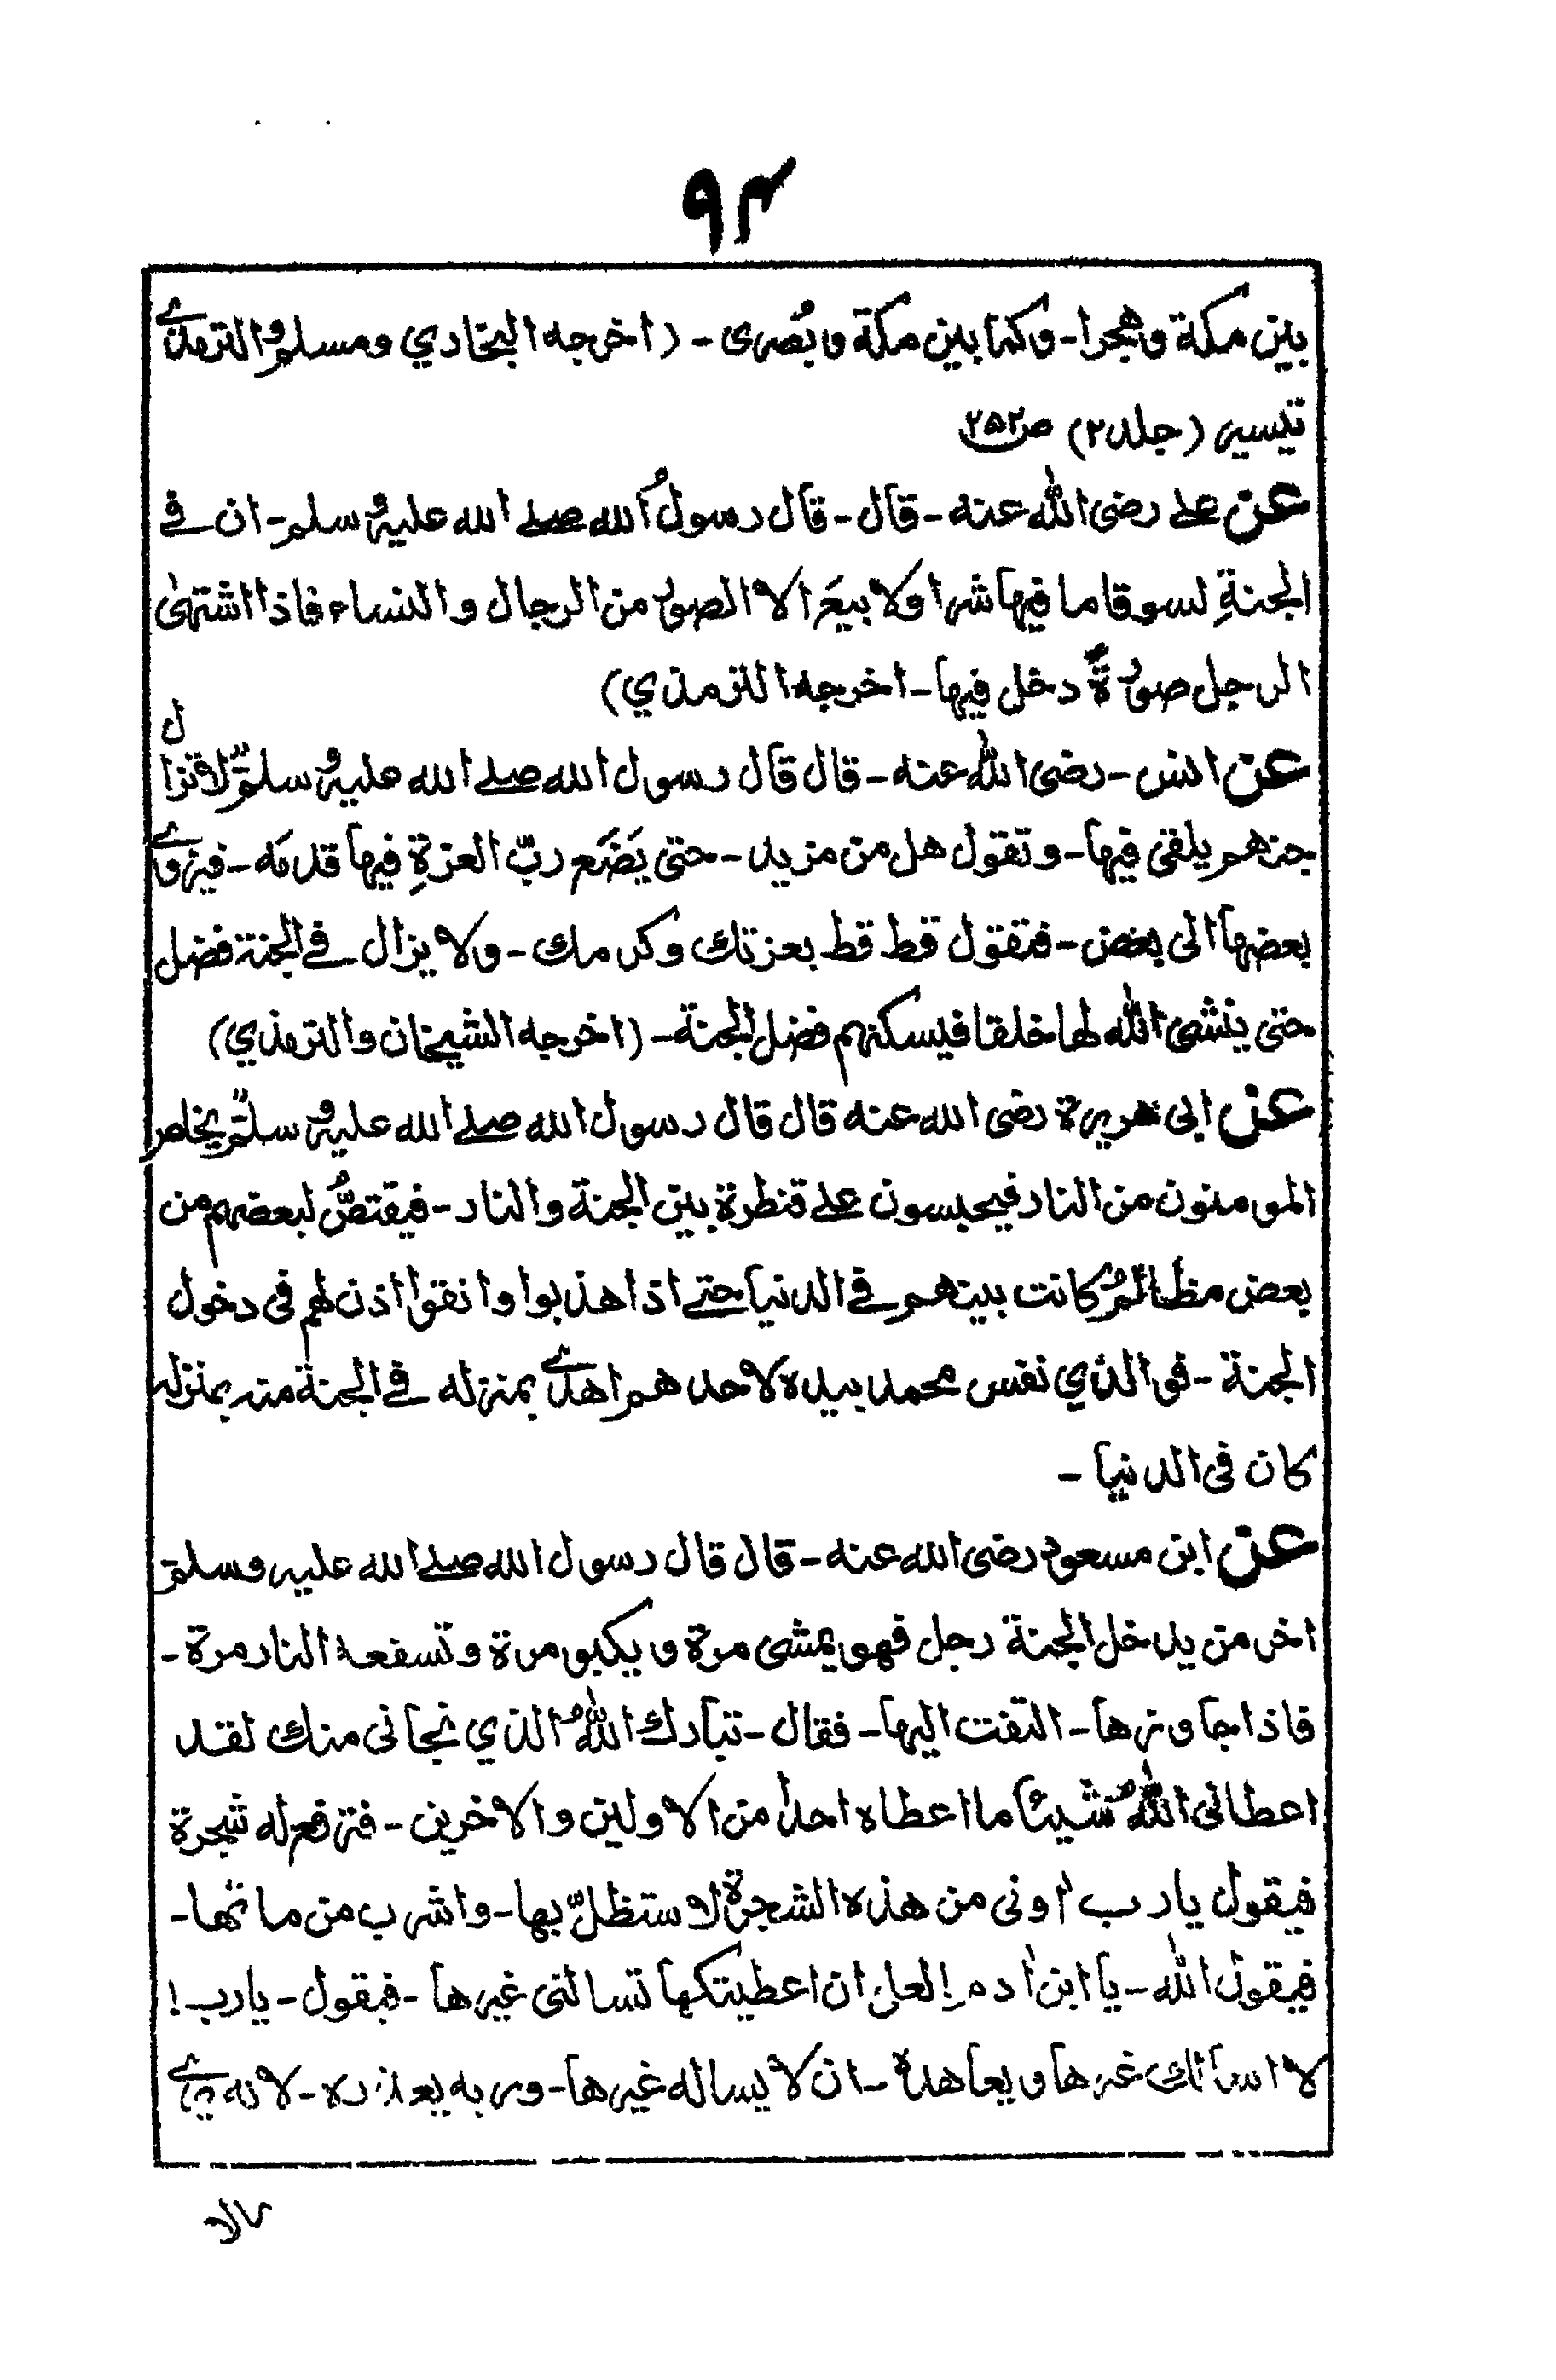 ۹۴
بین مکة وهجرا - وکما بین مکة وبُصری - (اخرجه البخاري ومسلم والترمذے
تیسیر (جلد ۲) ص ۲۵۲
عن علے رضی الله عنه - قال - قال رسولُ الله صلے الله علیه وسلم - ان فے
الجنةِ لسوقا ما فیها شرا ولا بیعَ الا الصور من الرجال والنساء فاذا اشتهیٰ
الرجل صورةً دخل فیها - اخرجه الترمذي)
عن انس - رضی الله عنه - قال قال رسول الله صلے الله علیه وسلم لا تزال
جنهم یلقی فیها - وتقول هل من مزید - حتی یَضَع ربّ العزةِ فیها قدمَه - فیزوے
بعضها الی بعض - فتقول قط قط بعزتك وكرمك - ولا یزال فے الجنة فضل
حتی ینشی الله لها خلقا فیسكنهم فضل الجنة - (اخرجه الشیخان والترمذي)
عن ابی هریرة رضی الله عنه قال قال رسول الله صلے الله علیه وسلم یخلص
المومنون من النار فیحبسون علے قنطرة بین الجنة والنار - فیقتصُّ لبعضهم من
بعض مظالمُ كانت بینهم فے الدنیا حتے اذا هذبوا وانقوا اذن لهم فی دخول
الجنة - فوالذي نفس محمد بیده لاحدهم اهدےٰ بمنزله فے الجنة منه بمنزله
كان فی الدنیا -
عن ابن مسعود رضی الله عنه - قال قال رسول الله صلے الله علیه وسلم
اخر من یدخل الجنة رجل فهو یمشی مرة ویكبو مرة وتسفعه النار مرة -
فاذا جاوزها - التفت الیها - فقال - تبارك اللهُ الذي نجانی منك لقد
اعطانی اللهُ شیئاً ما اعطاه احداً من الاولین والاخرین - فترفع له شجرة
فیقول یارب اٰونی من هذه الشجرة لاستظلّ بها - واشرب من مائها -
فیقول الله - یا ابن اٰدم! لعلی ان اعطیتكها تسالنی غیرها - فیقول - یارب!
لا اسالك غیرها ویعاهدهٗ - ان لا یساله غیرها - وربه یعذره - لانه یرےٰ